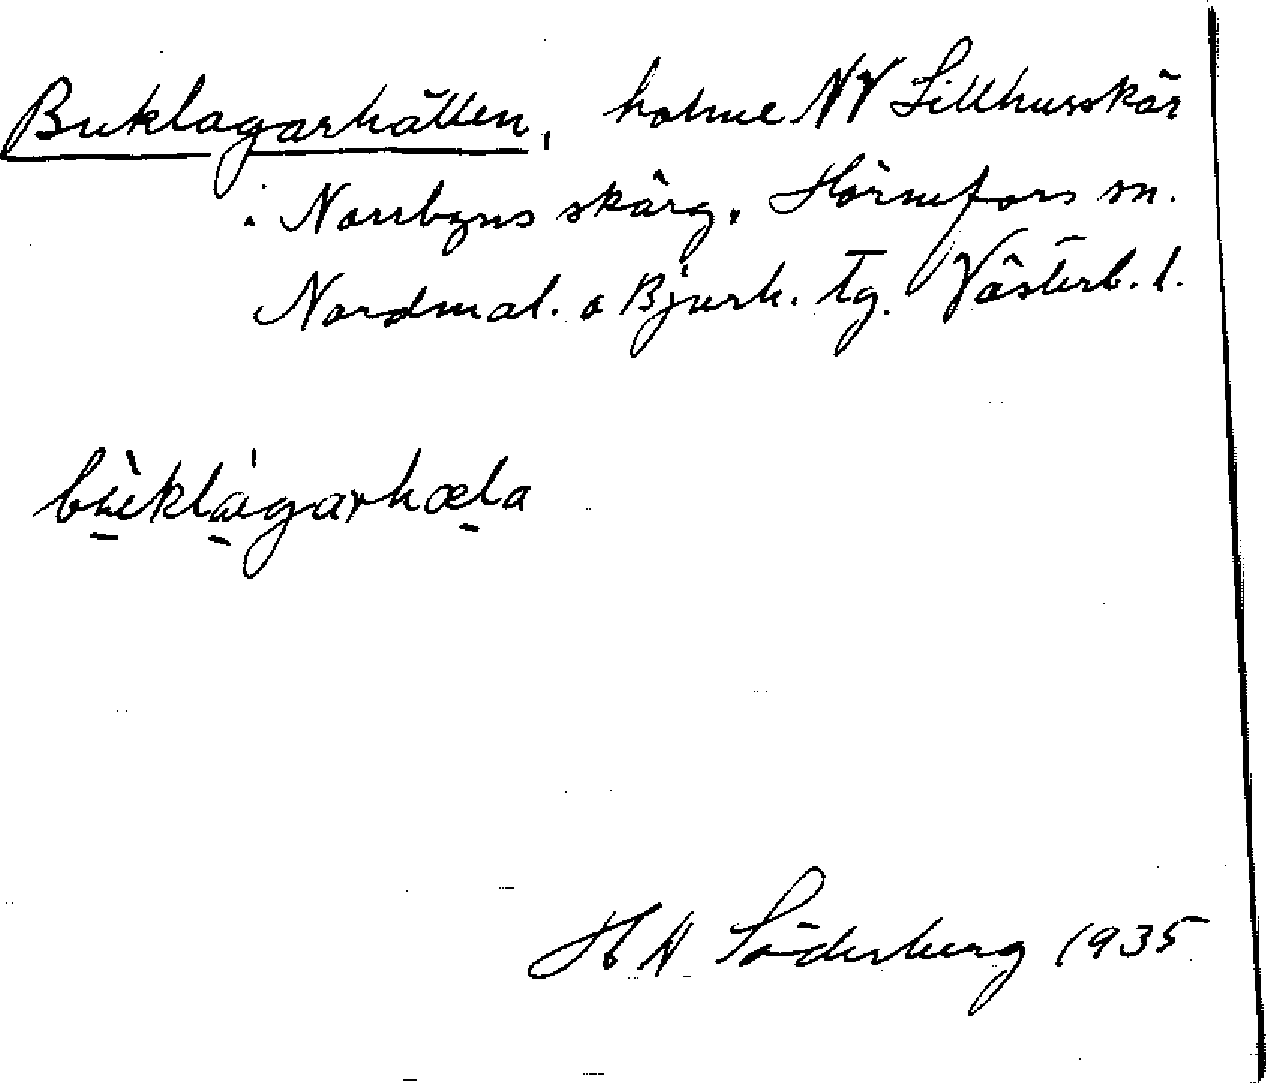 Buklagarhällen, holme NV Lillhusskär
i Norrbyns skärg. Hörnefors sn.
Nordmal. o Bjurh. tg. Västerb. l.
bùklágarhæla
H A Söderberg 1935